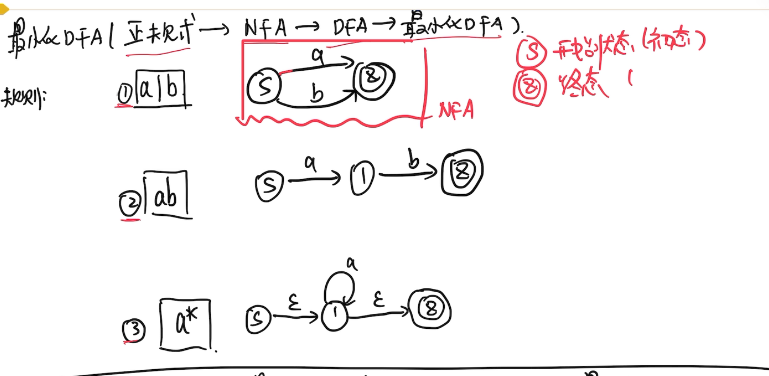 最小化DFA( 正规式 → NFA → DFA → 最小化DFA ).
规则:
① a|b
S a b 8
NFA
S 开始状态 (初态)
8 终态 (
② ab
S a 1 b 8
③ a*
S ε 1 a ε 8